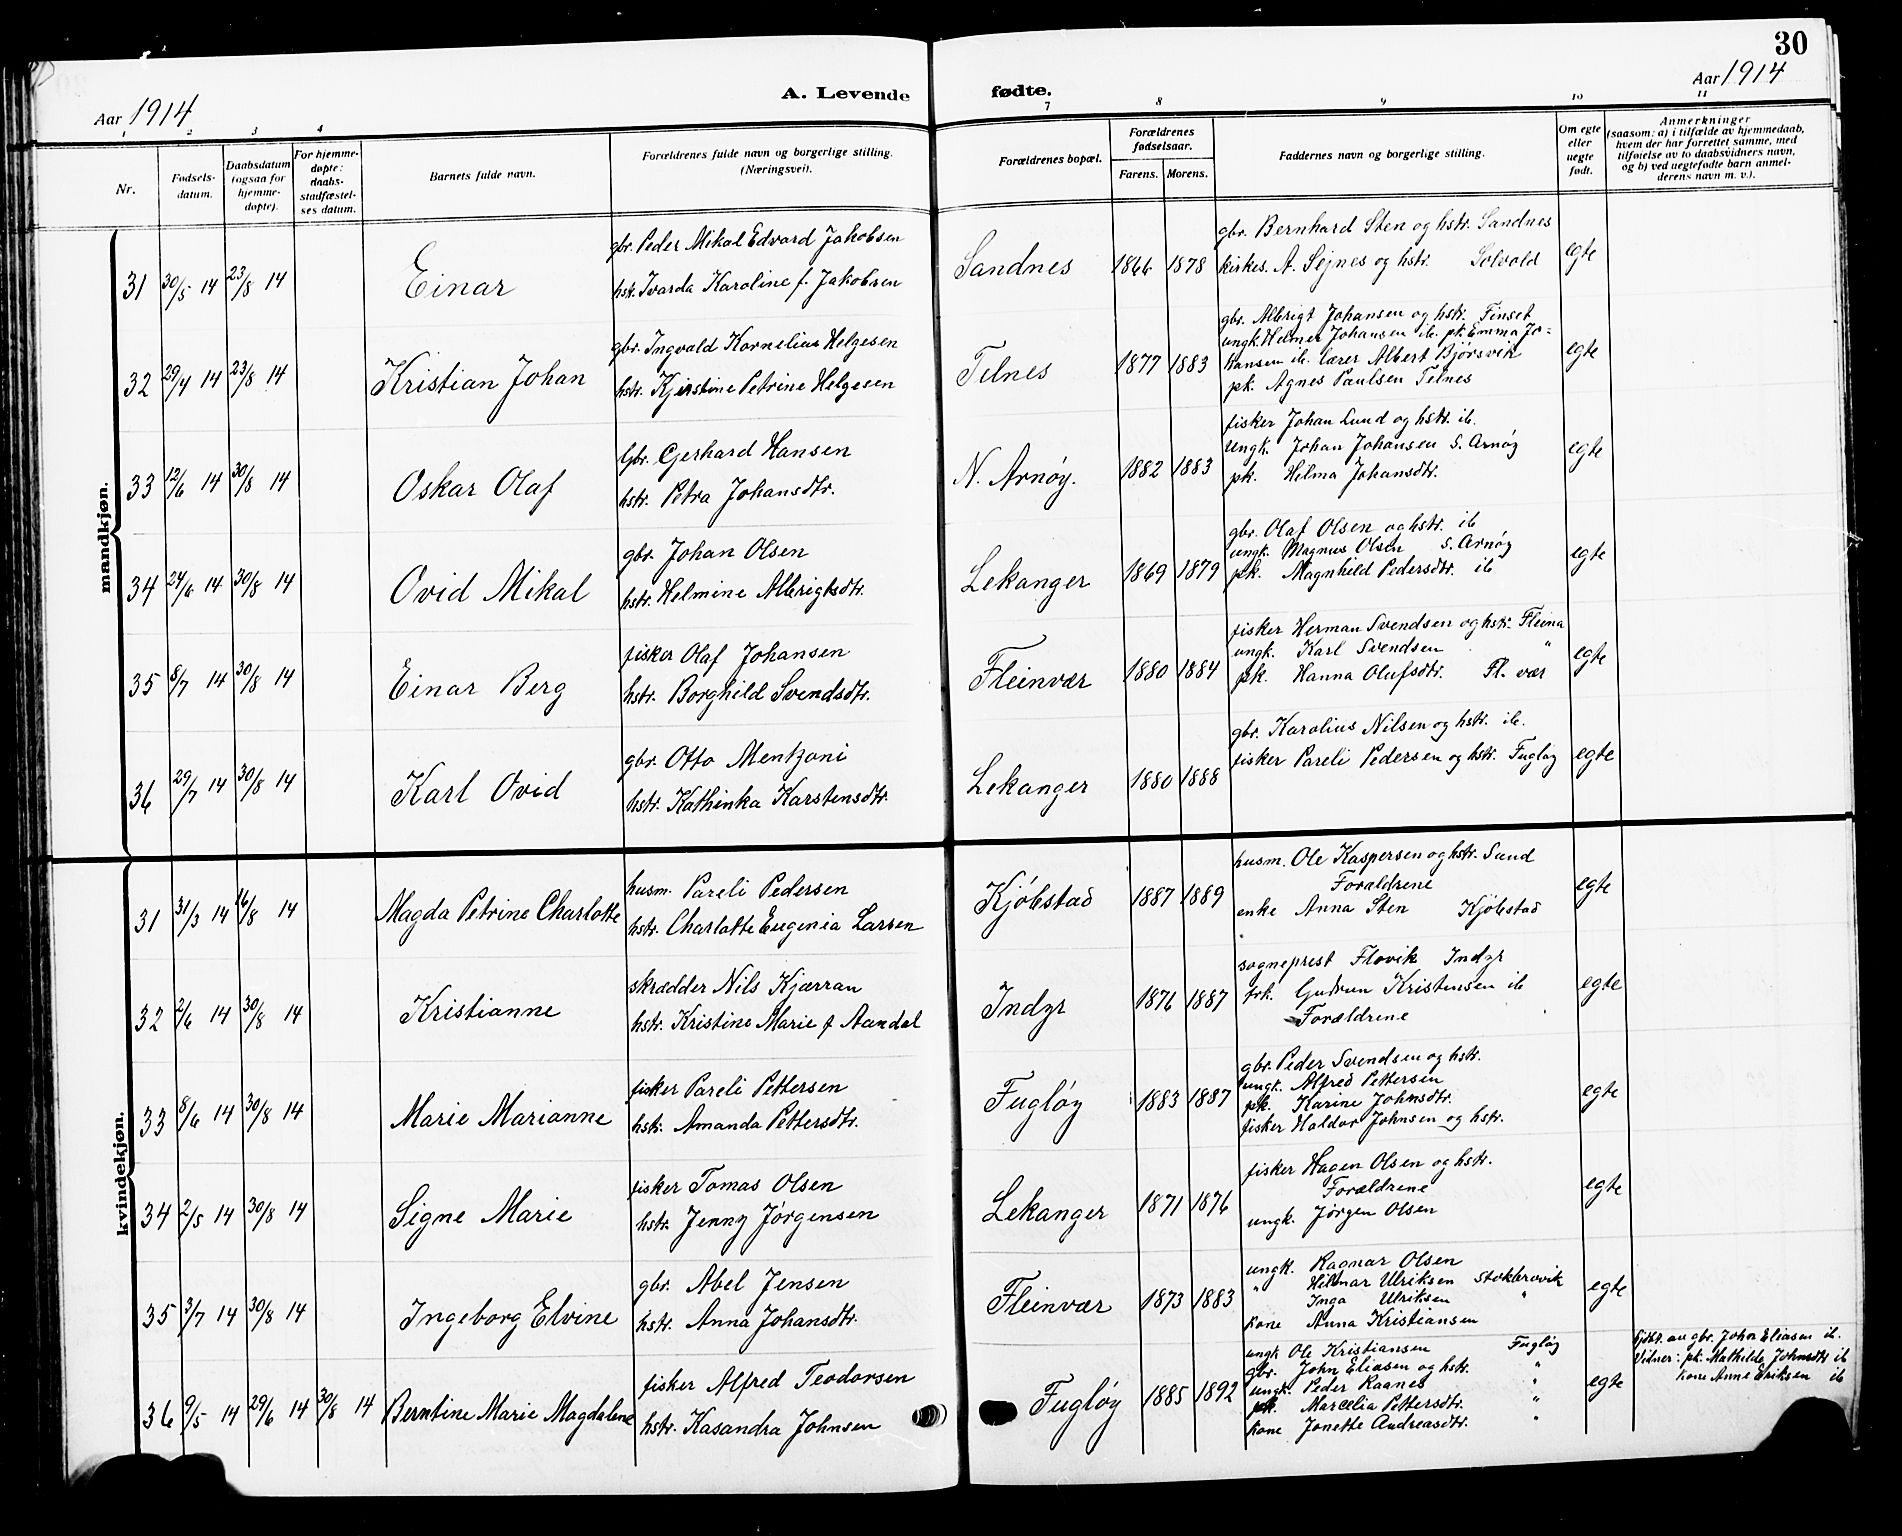 30
Aar 1914
A. Levende fødte.
Aar 1914
1 2 3 4 7 8 9 10 11
Nr.
Fødsels-
datum.
Daabsdatum
(ogsaa for
hjemme-
døpte).
For hjemme-
døpte:
daabs-
stadfæstel-
ses datum.
Barnets fulde navn.
Forældrenes fulde navn og borgerlige stilling.
(Næringsvei).
Forældrenes bopæl.
Forældrenes
fødselsaar.
Farens. Morens.
Faddernes navn og borgerlige stilling.
Om egte
eller
uegte
født.
Anmerkninger
(saasom: a) i tilfælde av hjemmedaab,
hvem der har forrettet samme, med
tilføielse av to daabsvidners navn,
og b) ved uegtefødte barn anmel-
derens navn m. v.).
mandkjøn.
31 30/5 14 23/8 14 Einar
gbr. Peder Mikal Edvard Jakobsen
hstr. Ivarda Karoline f. Jakobsen
Sandnes 1866 1878
gbr. Bernhard Sten og hstr. Sandnes
kirkes. A. Sejnes og hstr. Solvold
egte
32 29/4 14 23/8 14 Kristian Johan
gbr. Ingvald Kornelius Helgesen
hstr. Kjerstine Petrine Helgesen
Telnes 1877 1883
gbr. Albrigt Johansen og hstr. Finset
ungk. Helmer Johansen ib. pk. Emma Jo-
hansen ib. lærer Albert Bjørsvik
pk. Agnes Paulsen Telnes
egte
33 12/6 14 30/8 14 Oskar Olaf
Gbr. Gerhard Hansen
hstr. Petra Johansdtr.
N. Arnøy. 1882 1883
fisker Johan Lund og hstr. ib.
Ungk. Johan Johansen S. Arnøy
pk. Helma Johansdtr.
egte
34 24/6 14 30/8 14 Ovid Mikal
gbr. Johan Olsen
hstr. Helmine Albrigtsdtr.
Lekanger 1869 1879
gbr. Olaf Olsen og hstr. ib
ungk. Magnus Olsen S. Arnøy
pk. Magnhild Pedersdtr. ib
egte
35 8/7 14 30/8 14 Einar Berg
fisker Olaf Johansen
hstr. Borghild Svendsdtr.
Fleinvær 1880 1884
fisker Herman Svendsen og hstr. Fleina
ungk. Karl Svendsen "
pk. Hanna Olufsdtr. Fl. vær
egte
36 29/7 14 30/8 14 Karl Ovid
gbr. Otto Mentzoni
hstr. Kathinka Karstensdtr.
Lekanger 1880 1888
gbr. Karolius Nilsen og hstr. ib.
fisker Pareli Pedersen og hstr. Fugløy
egte
kvindekjøn.
31 31/3 14 16/8 14 Magda Petrine Charlotte
husm. Pareli Pedersen
hstr. Charlotte Eugenia Larsen
Kjøbstad 1887 1889
husm. Ole Kaspersen og hstr. Sund
Forældrene
enke Anna Sten Kjøbstad
egte
32 2/6 14 30/8 14 Kristianne
skrædder Nils Kjærran
hstr. Kristine Marie f Aandal
Indyr 1876 1887
sogneprest Flovik Indyr
frk. Gudrun Kristensen ib
Forældrene
egte
33 8/6 14 30/8 14 Marie Marianne
fisker Pareli Pettersen
hstr. Amanda Pettersdtr.
Fugløy 1883 1887
gbr. Peder Svendsen og hstr.
ungk. Alfred Pettersen
pk. Karine Johnsdtr.
fisker Haldor Johnsen og hstr.
egte
34 2/5 14 30/8 14 Signe Marie
fisker Tomas Olsen
hstr. Jenny Jørgensen
Lekanger 1871 1876
fisker Hagen Olsen og hstr.
Forældrene
ungk. Jørgen Olsen
egte
35 3/7 14 30/8 14 Ingeborg Elvine
gbr. Abel Jensen
hstr. Anna Johansdtr.
Fleinvær 1873 1883
ungk. Ragnar Olsen
" Hilmar Ulriksen
Inga Ulriksen "
kone Anna Kristiansen
egte
36 9/5 14 29/6 14 30/8 14 Berntine Marie Magdalene
fisker Alfred Teodorsen
hstr. Kasandra Johnsen
Fugløy 1885 1892
ungk Ole Kristiansen Fugløy
gbr. John Eliasen og hstr. "
ungk. Peder Raanes "
pk. Marcelia Pettersdtr. "
kone Jonette Andreasdtr. "
egte
hjdbt. av gbr. John Eliasen ib.
Vidner: pk. Mathilde Johnsdtr ib
kone Anne Eriksen ib